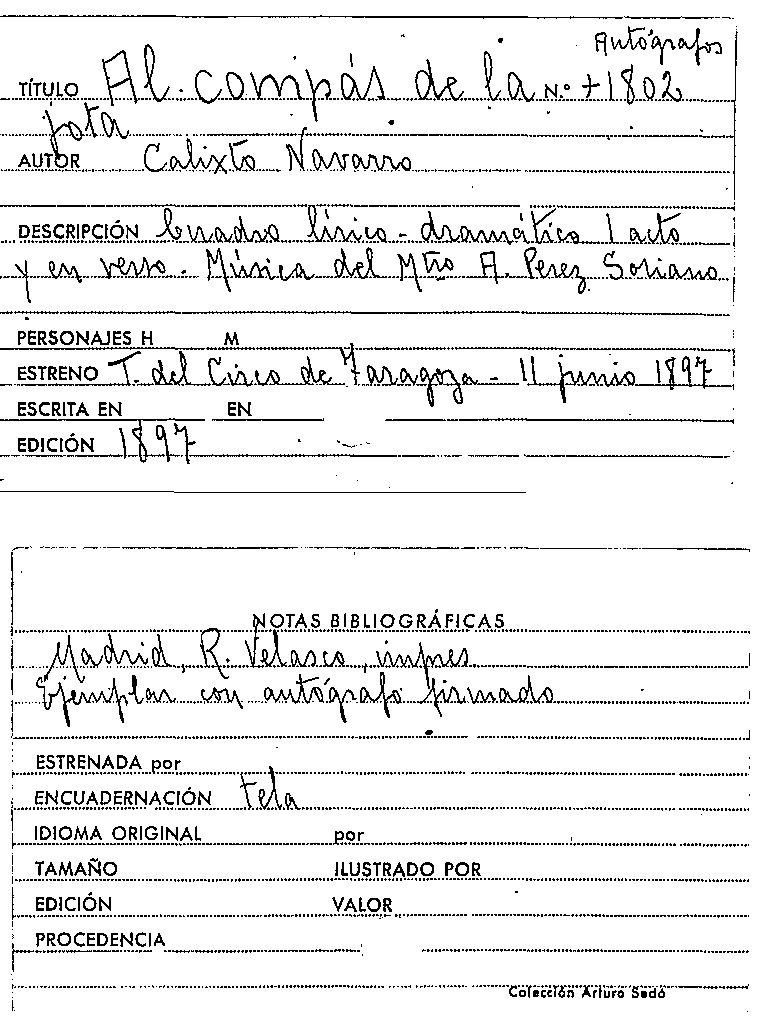 Autógrafos
TÍTULO Al compás de la N.º +1802
jota
AUTOR Calixto Navarro
DESCRIPCIÓN Cuadro lírico-dramático 1 acto
y en verso. Música del Mtro A. Perez Soriano
PERSONAJES H M
ESTRENO T. del Circo de Zaragoza - 11 junio 1897
ESCRITA EN EN
EDICIÓN 1897
NOTAS BIBLIOGRÁFICAS
Madrid, R. Velasco, impres.
Ejemplar con autógrafo firmado
ESTRENADA por
ENCUADERNACIÓN tela
IDIOMA ORIGINAL por
TAMAÑO ILUSTRADO POR
EDICIÓN VALOR
PROCEDENCIA
Colección Arturo Sedó